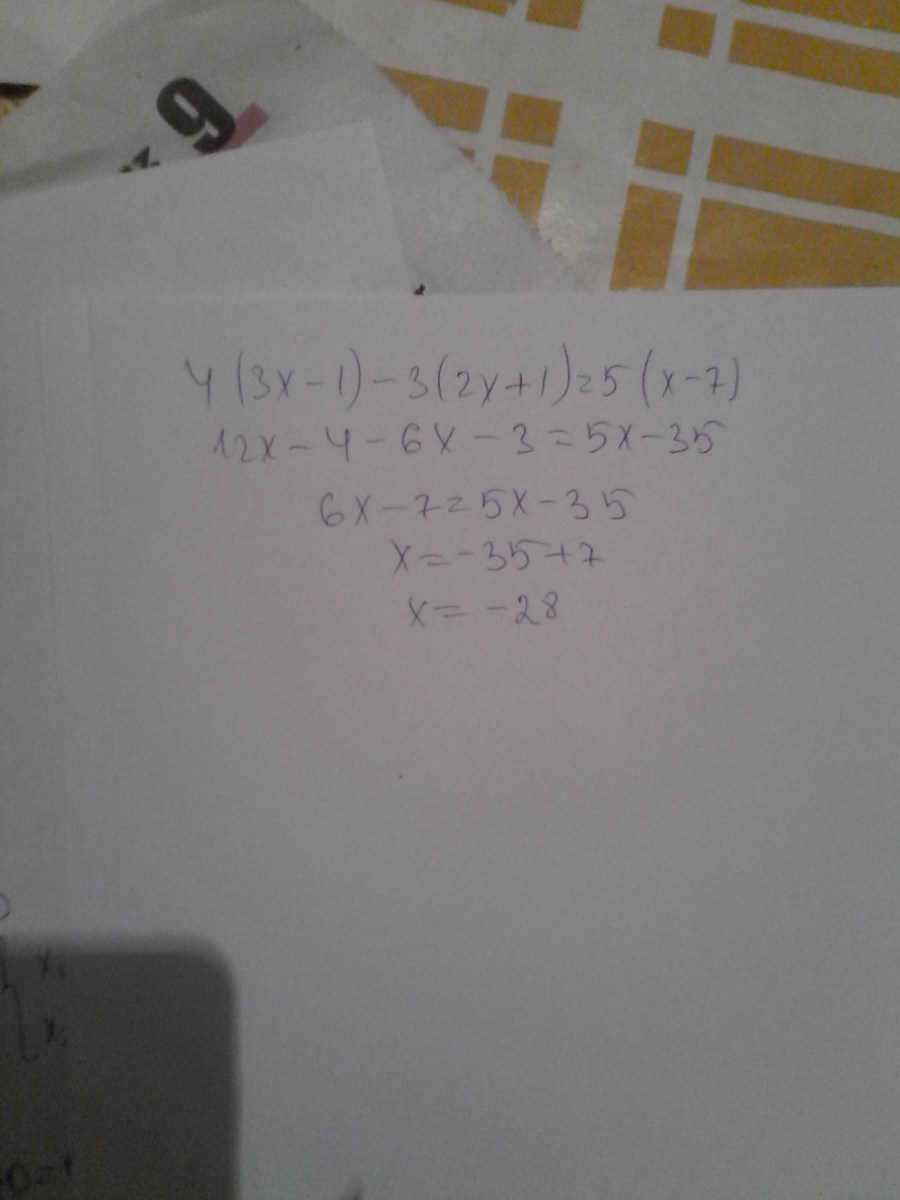 9
4(3x-1)-3(2x+1)=5(x-7)
12x-4-6x-3=5x-35
6x-7=5x-35
x=-35+7
x=-28